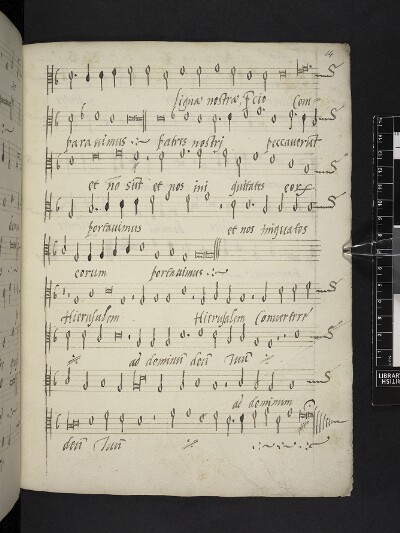 14
ligna nostra p̄cio Com=
parauimus patres nostri peccauerūt
et nō sūt et nos ini quitates eorū
portauimus et nos iniquates
eorum portauimus
Hierusalem Hierusalem Conuertere
ad dominū deū tuū
ad dominum
deū tuū
LIBRARY